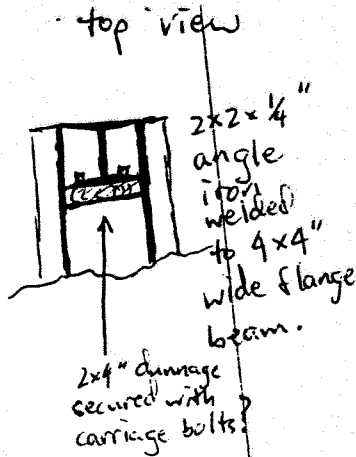 top view
2x2x1/4"
angle
iron
welded
to 4x4"
wide flange
beam.
2x4" dunnage
secured with
carriage bolts?